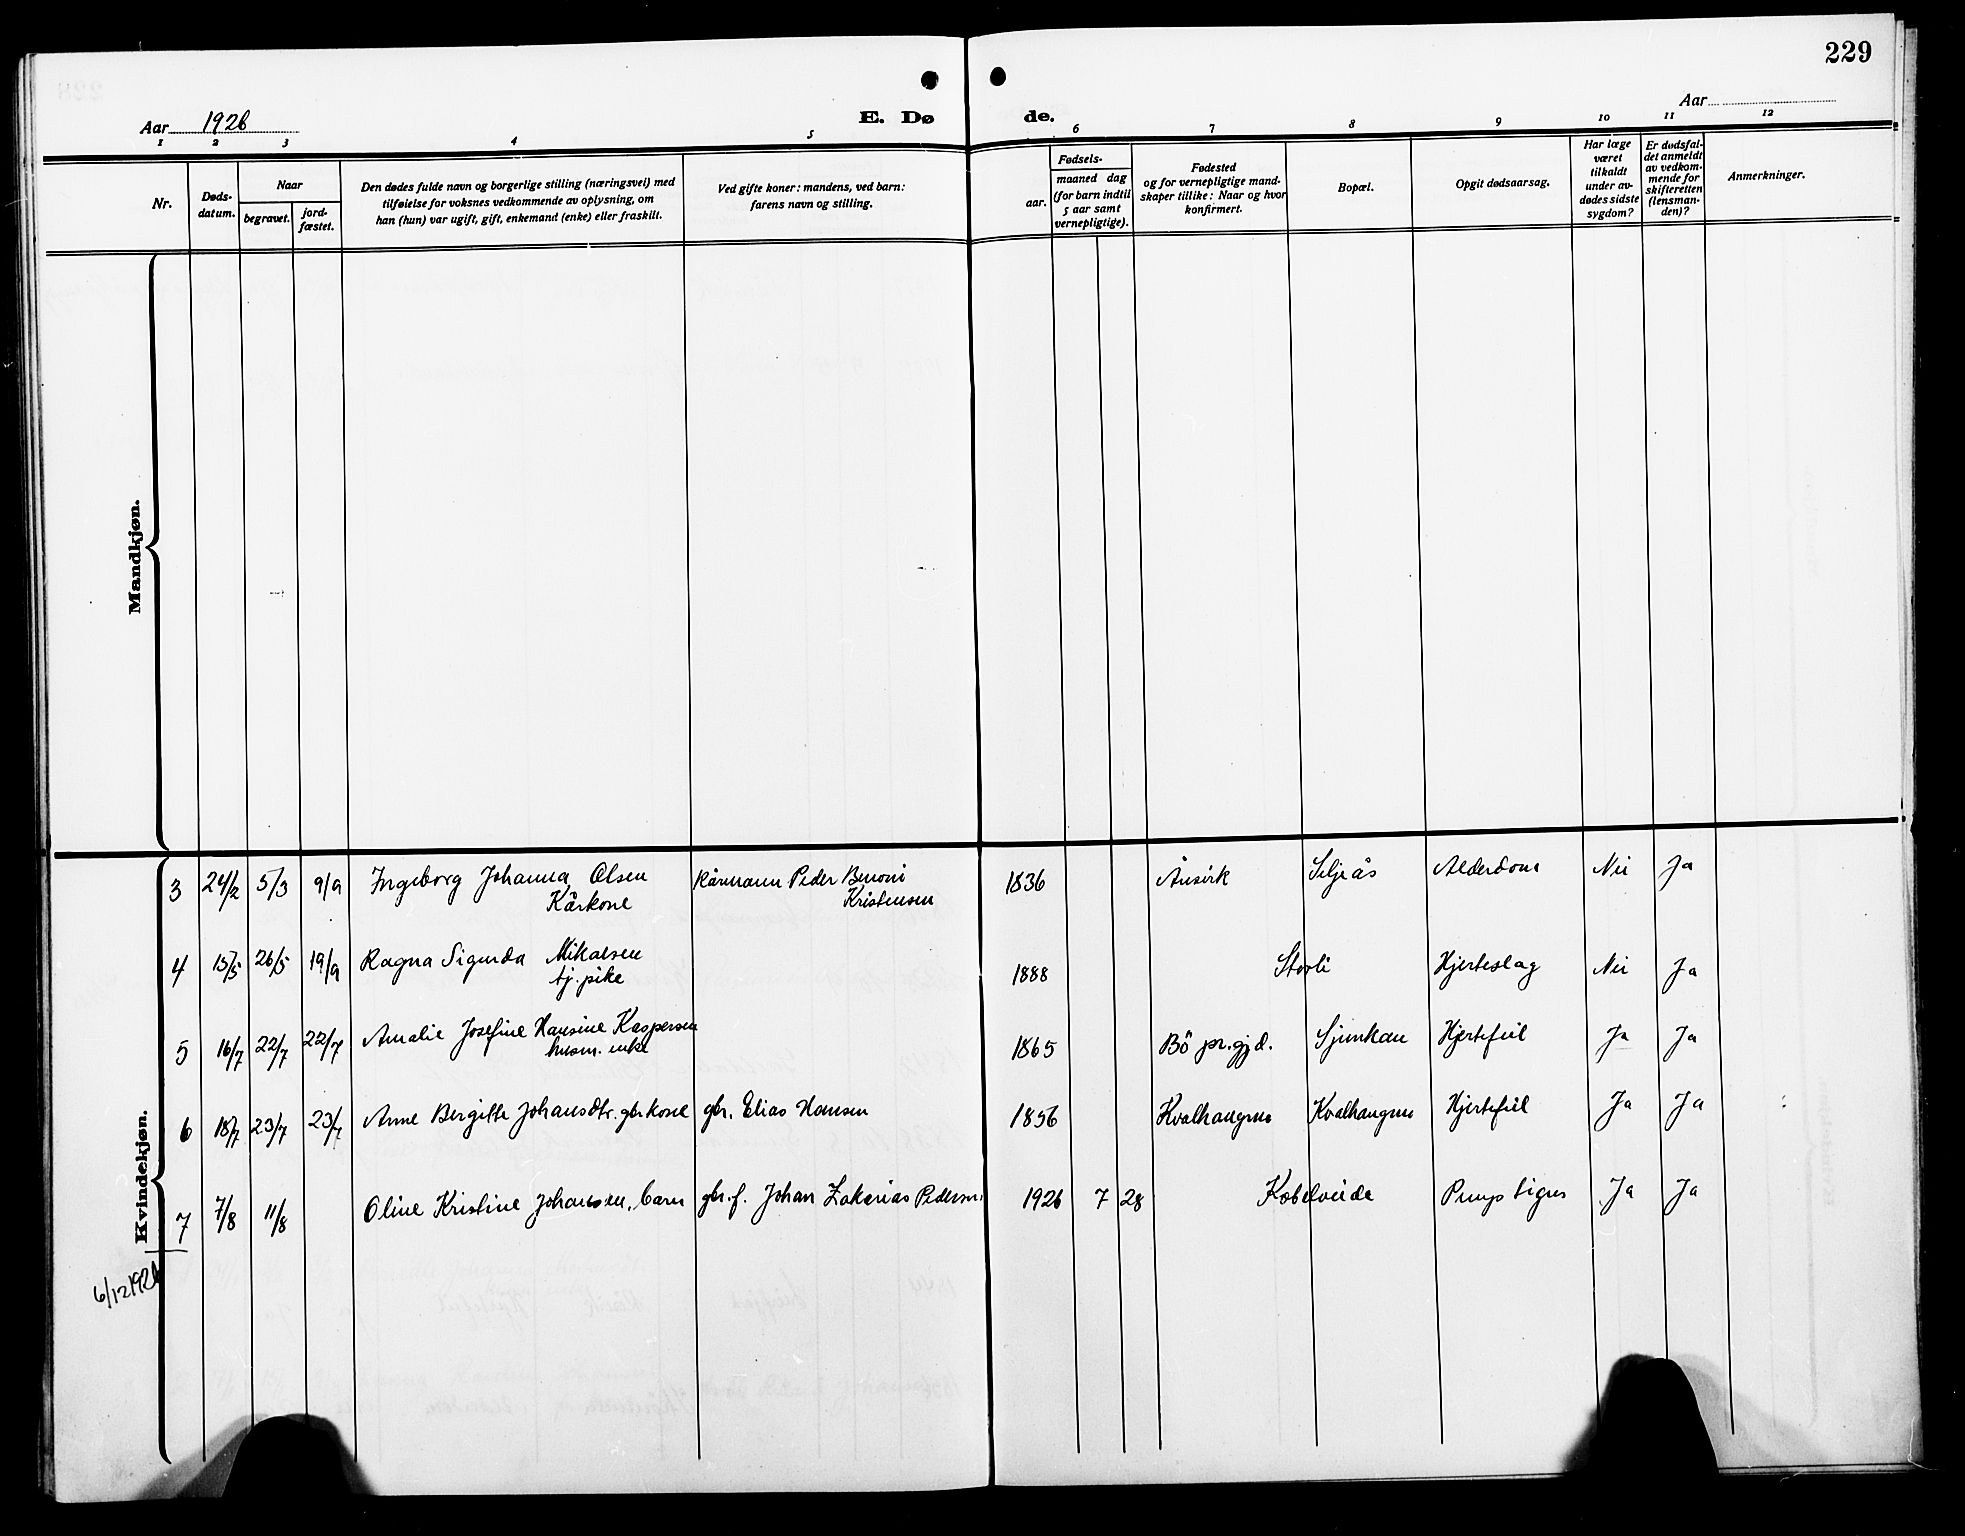 229
Aar 1926
E. Dø de.
Aar
1 2 3 4 5 6 7 8 9 10 11 12
Nr.
Døds-
datum.
Naar
begravet.
jord-
fæstet.
Den dødes fulde navn og borgerlige stilling (næringsvei) med
tilføielse for voksnes vedkommende av oplysning, om
han (hun) var ugift, gift, enkemand (enke) eller fraskilt.
Ved gifte koner: mandens, ved barn:
farens navn og stilling.
Fødsels-
aar.
maaned dag
(for barn indtil
5 aar samt
vernepligtige).
Fødested
og for vernepligtige mand-
skaper tillike: Naar og hvor
konfirmert.
Bopæl.
Opgit dødsaarsag.
Har læge
været
tilkaldt
under av-
dødes sidste
sygdom?
Er dødsfal-
det anmeldt
av vedkom-
mende for
skifteretten
(lensman-
den)?
Anmerkninger.
Mandkjøn.
Kvindekjøn.
3 24/2 5/3 9/9 Ingeborg Johanna Olsen Kårmann Peder Benoni 1836 Ånsvik Siljeås Alderdom Nei Ja
Kårkone Kristensen
4 15/5 26/5 19/9 Ragna Sigurda Mikalsen 1888 Storli Hjerteslag Nei Ja
tj. pike
5 16/7 22/7 22/7 Amalie Josefine Hansine Kaspersen 1865 Bö pr.gjd. Sjunkan Hjertefeil Ja Ja
husm. enke
6 18/7 23/7 23/7 Anne Bergitte Johansdtr. gbr kone gbr. Elias Hansen 1856 Kvalhaugnes Kvalhaugnes Hjertefeil Ja Ja
7 7/8 11/8 Oline Kristine Johansen, barn gbr. f. Johan Zakarias Pedersen 1926 7 28 Kobelveide Ja Ja
6/12 1926